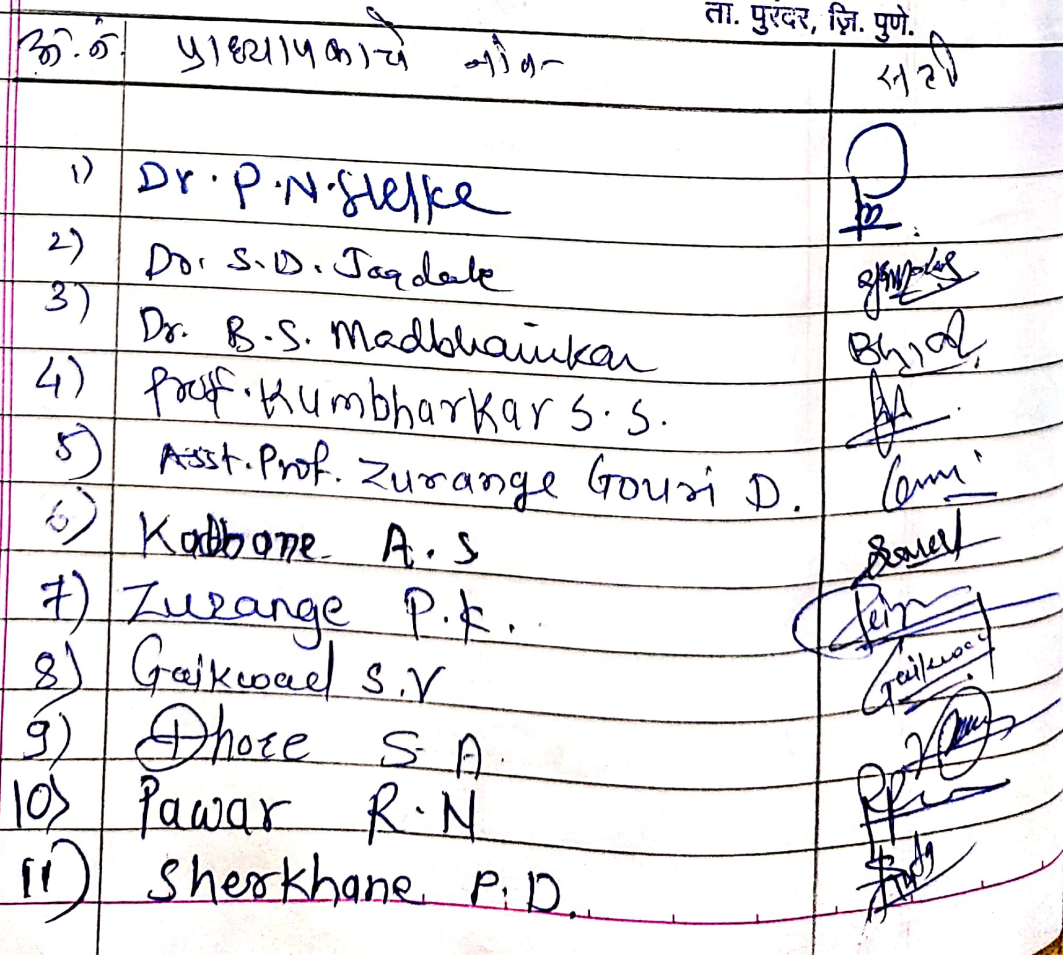 ता. पुरंदर, जि. पुणे.
अ.नं. प्राध्यापकाचे नांव सही
1) Dr. P.N. Shelke
2) Dr. S.D. Jagdale
3) Dr. B.S. Madbhavikar
4) Prof. Kumbharkar S.S.
5) Asst. Prof. Zurange Gouri D.
6) Kabbone A.S
7) Zurange P.K.
8) Gaikwad S.V Gaikwad
9) Dhore S A.
10) Pawar R.N
11) Sherkhane P.D.